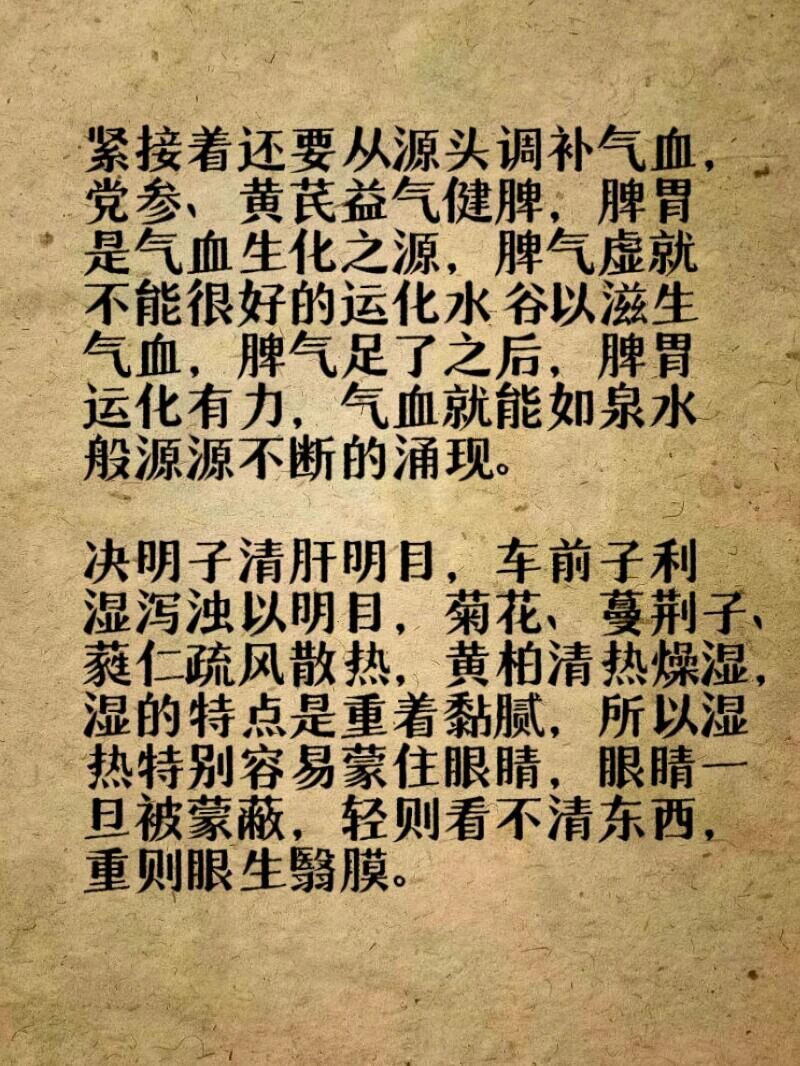 紧接着还要从源头调补气血，
党参、黄芪益气健脾，脾胃
是气血生化之源，脾气虚就
不能很好的运化水谷以滋生
气血，脾气足了之后，脾胃
运化有力，气血就能如泉水
般源源不断的涌现。
决明子清肝明目，车前子利
湿泻浊以明目，菊花、蔓荆子、
蕤仁疏风散热，黄柏清热燥湿，
湿的特点是重着黏腻，所以湿
热特别容易蒙住眼睛，眼睛一
旦被蒙蔽，轻则看不清东西，
重则眼生翳膜。